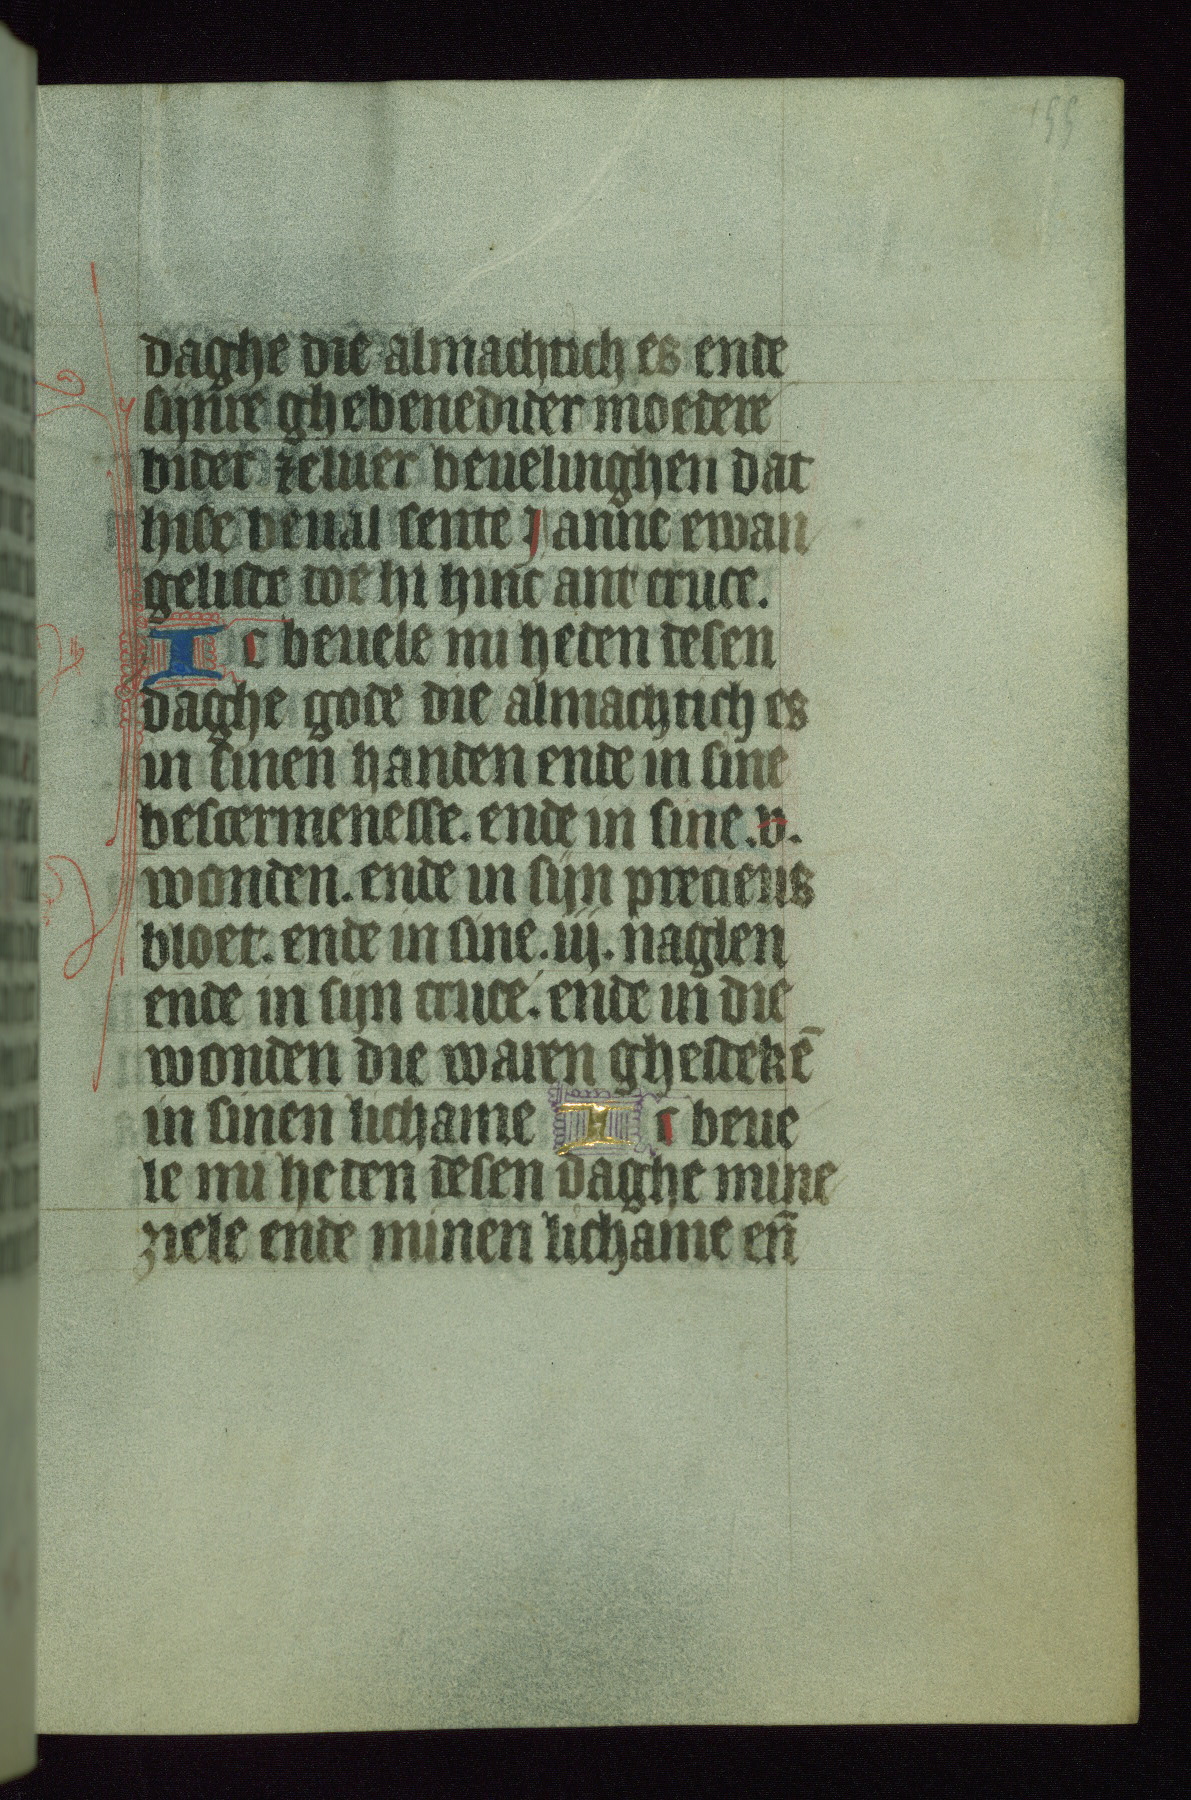 155
daghe die almachtich es ende
sijnre ghebenedider moedere
diter zeluer beuelinghen dat
hise beual sente Janne ewan
geliste doe hi hinc ant cruce.
Ic beuele mi heden desen
daghe gode die almachtich es
in sinen handen ende in sine
bescermenesse. ende in sine .v.
wonden. ende in sijn precieus
bloet. ende in sine .iij. naglen
ende in sijn cruce. ende in die
wonden die waren ghestekē
in sinen lichame Ic beue
le mi heden desen daghe mine
ziele ende minen lichame en̄